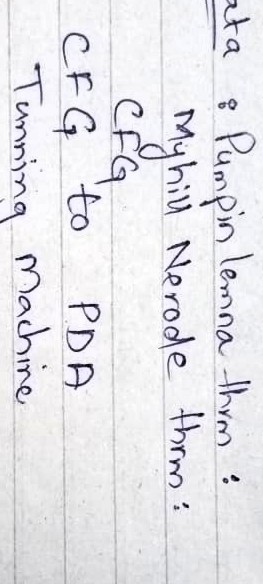 ata : Pumpin lemna thrm :
Myhill Nerode thrm :
CFG
CFG to PDA
Tunning Machine